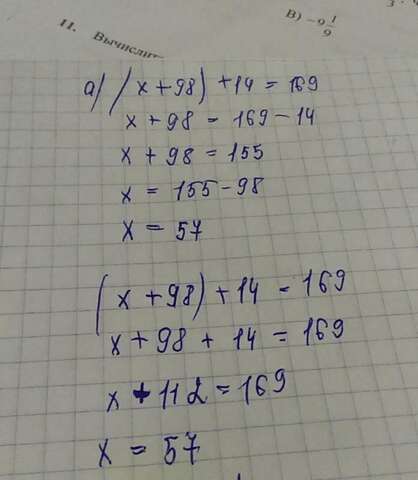 В) -9 1/9
11. Вычислит
а) (x + 98) + 14 = 169
x + 98 = 169 - 14
x + 98 = 155
x = 155 - 98
x = 57
(x + 98) + 14 = 169
x + 98 + 14 = 169
x + 112 = 169
x = 57